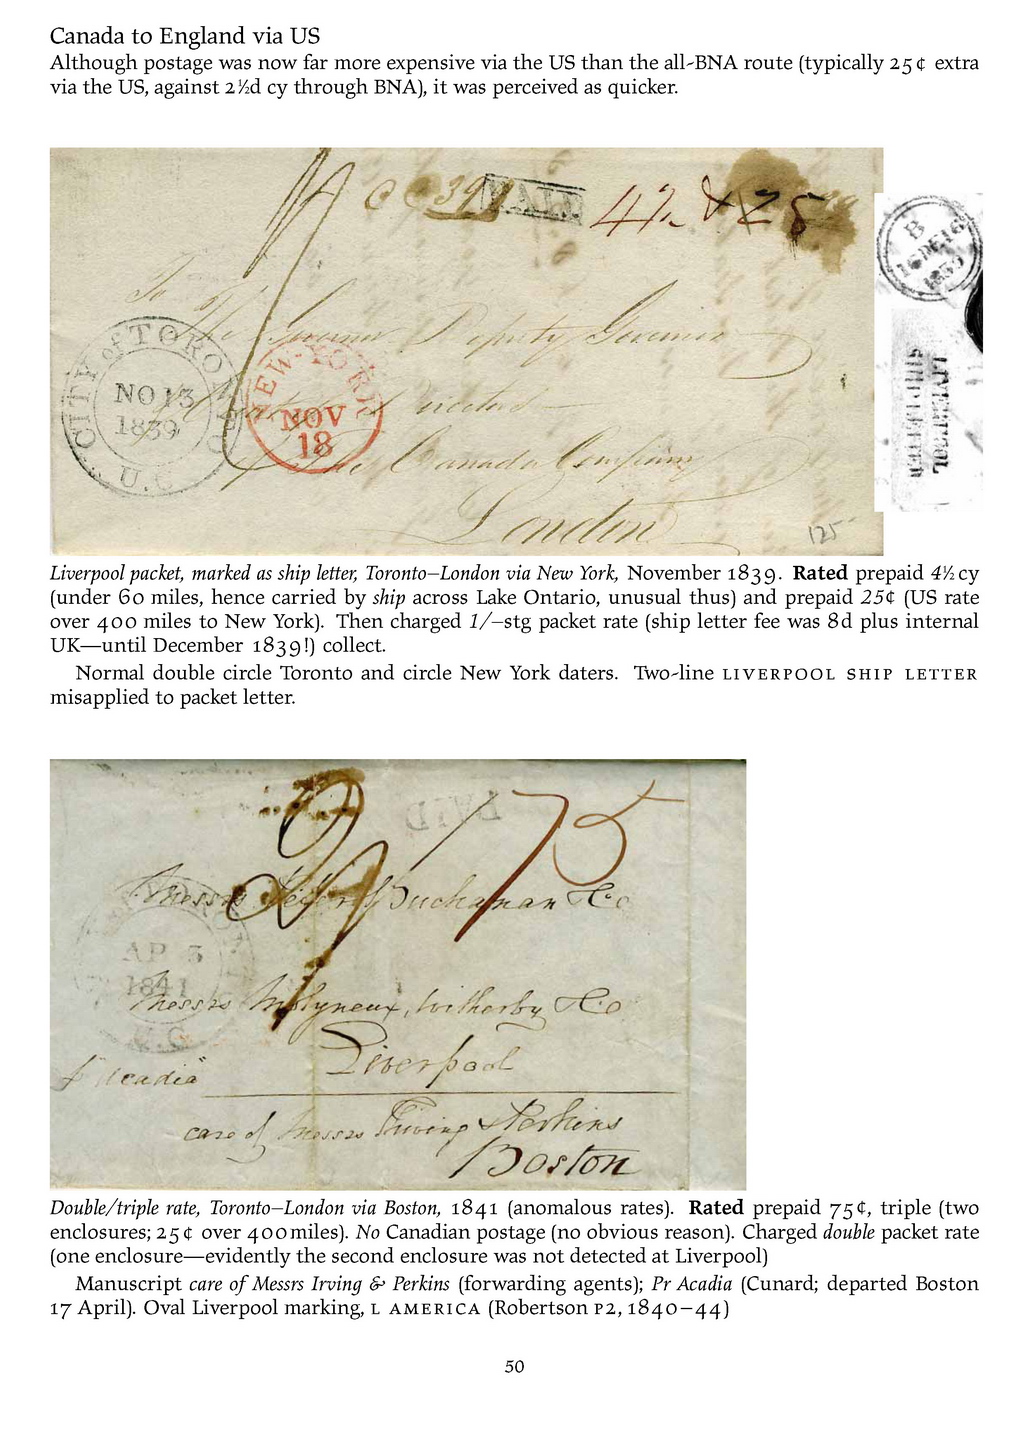 Canada to England via US
Although postage was now far more expensive via the US than the all-BNA route (typically 25¢ extra
via the US, against 2½d cy through BNA), it was perceived as quicker.
4½ & 25
B
16 DE 16
1839
To
The Governor Deputy Governor
CITY of TORONTO
NO 13
1839
U.C
NEW-YORK
NOV
18
LIVERPOOL
SHIP LETTER
of the Canada Company
London
125
Liverpool packet, marked as ship letter, Toronto–London via New York, November 1839. Rated prepaid 4½ cy
(under 60 miles, hence carried by ship across Lake Ontario, unusual thus) and prepaid 25¢ (US rate
over 400 miles to New York). Then charged 1/–stg packet rate (ship letter fee was 8d plus internal
UK—until December 1839!) collect.
Normal double circle Toronto and circle New York daters. Two-line LIVERPOOL SHIP LETTER
misapplied to packet letter.
PAID
75
Messrs Peter Buchanan & Co
AP 5
1841
U.C
Messrs Molyneux, Witherby & Co
Liverpool
p "Acadia"
care of Messrs Irving & Perkins
Boston
Double/triple rate, Toronto–London via Boston, 1841 (anomalous rates). Rated prepaid 75¢, triple (two
enclosures; 25¢ over 400 miles). No Canadian postage (no obvious reason). Charged double packet rate
(one enclosure—evidently the second enclosure was not detected at Liverpool)
Manuscript care of Messrs Irving & Perkins (forwarding agents); Pr Acadia (Cunard; departed Boston
17 April). Oval Liverpool marking, L AMERICA (Robertson P2, 1840–44)
50